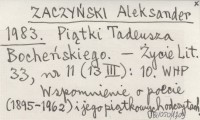 ZACZYŃSKI Aleksander
1983. Piątki Tadeusza
Bocheńskiego. – Życie Lit.
33, nr 11 (13 III): 10. WHP
Wspomnienie o poecie
(1895-1962) i jego piątkowych